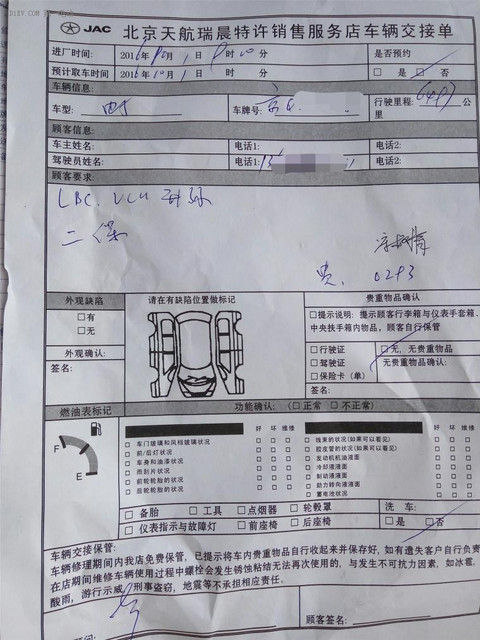 JAC 北京天航瑞晨特许销售服务店车辆交接单
进厂时间: 2016年10月1日 时 分 是否预约
预计取车时间 2016年10月1日 时 分 □是 □否
车辆信息:
车型: 车牌号: 行驶里程: 公里
顾客信息:
车主姓名: 电话1: 电话2:
驾驶员姓名: 电话1: 电话2:
顾客要求:
LBC. VCU 升级
二保
0293
外观缺陷 请在有缺陷位置做标记 贵重物品确认
□有
□无
□提示说明: 提示顾客行李箱与仪表手套箱、
中央扶手箱内物品, 顾客自行保管
外观确认:
□行驶证 □无, 无贵重物品
□驾驶证 无贵重物品确认:
□保险卡(单)
签名:
签名:
燃油表标记 功能确认: (□正常 □不正常)
F
E
好 坏 维修 好 坏 维修
□ 车门玻璃和风档玻璃状况 □ 线束的状况(如果可以看见)
□ 前/后灯状况 □ 胶皮管的状况(如果可以看见)
□ 车身和油漆状况 □ 发动机机油液面
□ 雨刮片状况 □ 冷却液液面
□ 前轮轮胎的状况 □ 制动液液面
□ 后轮轮胎的状况 □ 助力转向液液面
□ 蓄电池状况
□备胎 □工具 □点烟器 □轮毂罩 洗车:
□仪表指示与故障灯 □前座椅 □后座椅 □是 □否
车辆交接保管:
车辆修理期间内我店免费保管, 已提示将车内贵重物品自行收起来并保存好, 如有遗失客户自行负责
在店期间维修车辆使用过程中螺栓会发生锈蚀粘结无法再次使用的, 与发生不可抗力因素, 如冰雹,
酸雨, 游行示威, 刑事盗窃, 地震等不承担相应责任。
顾客签名: